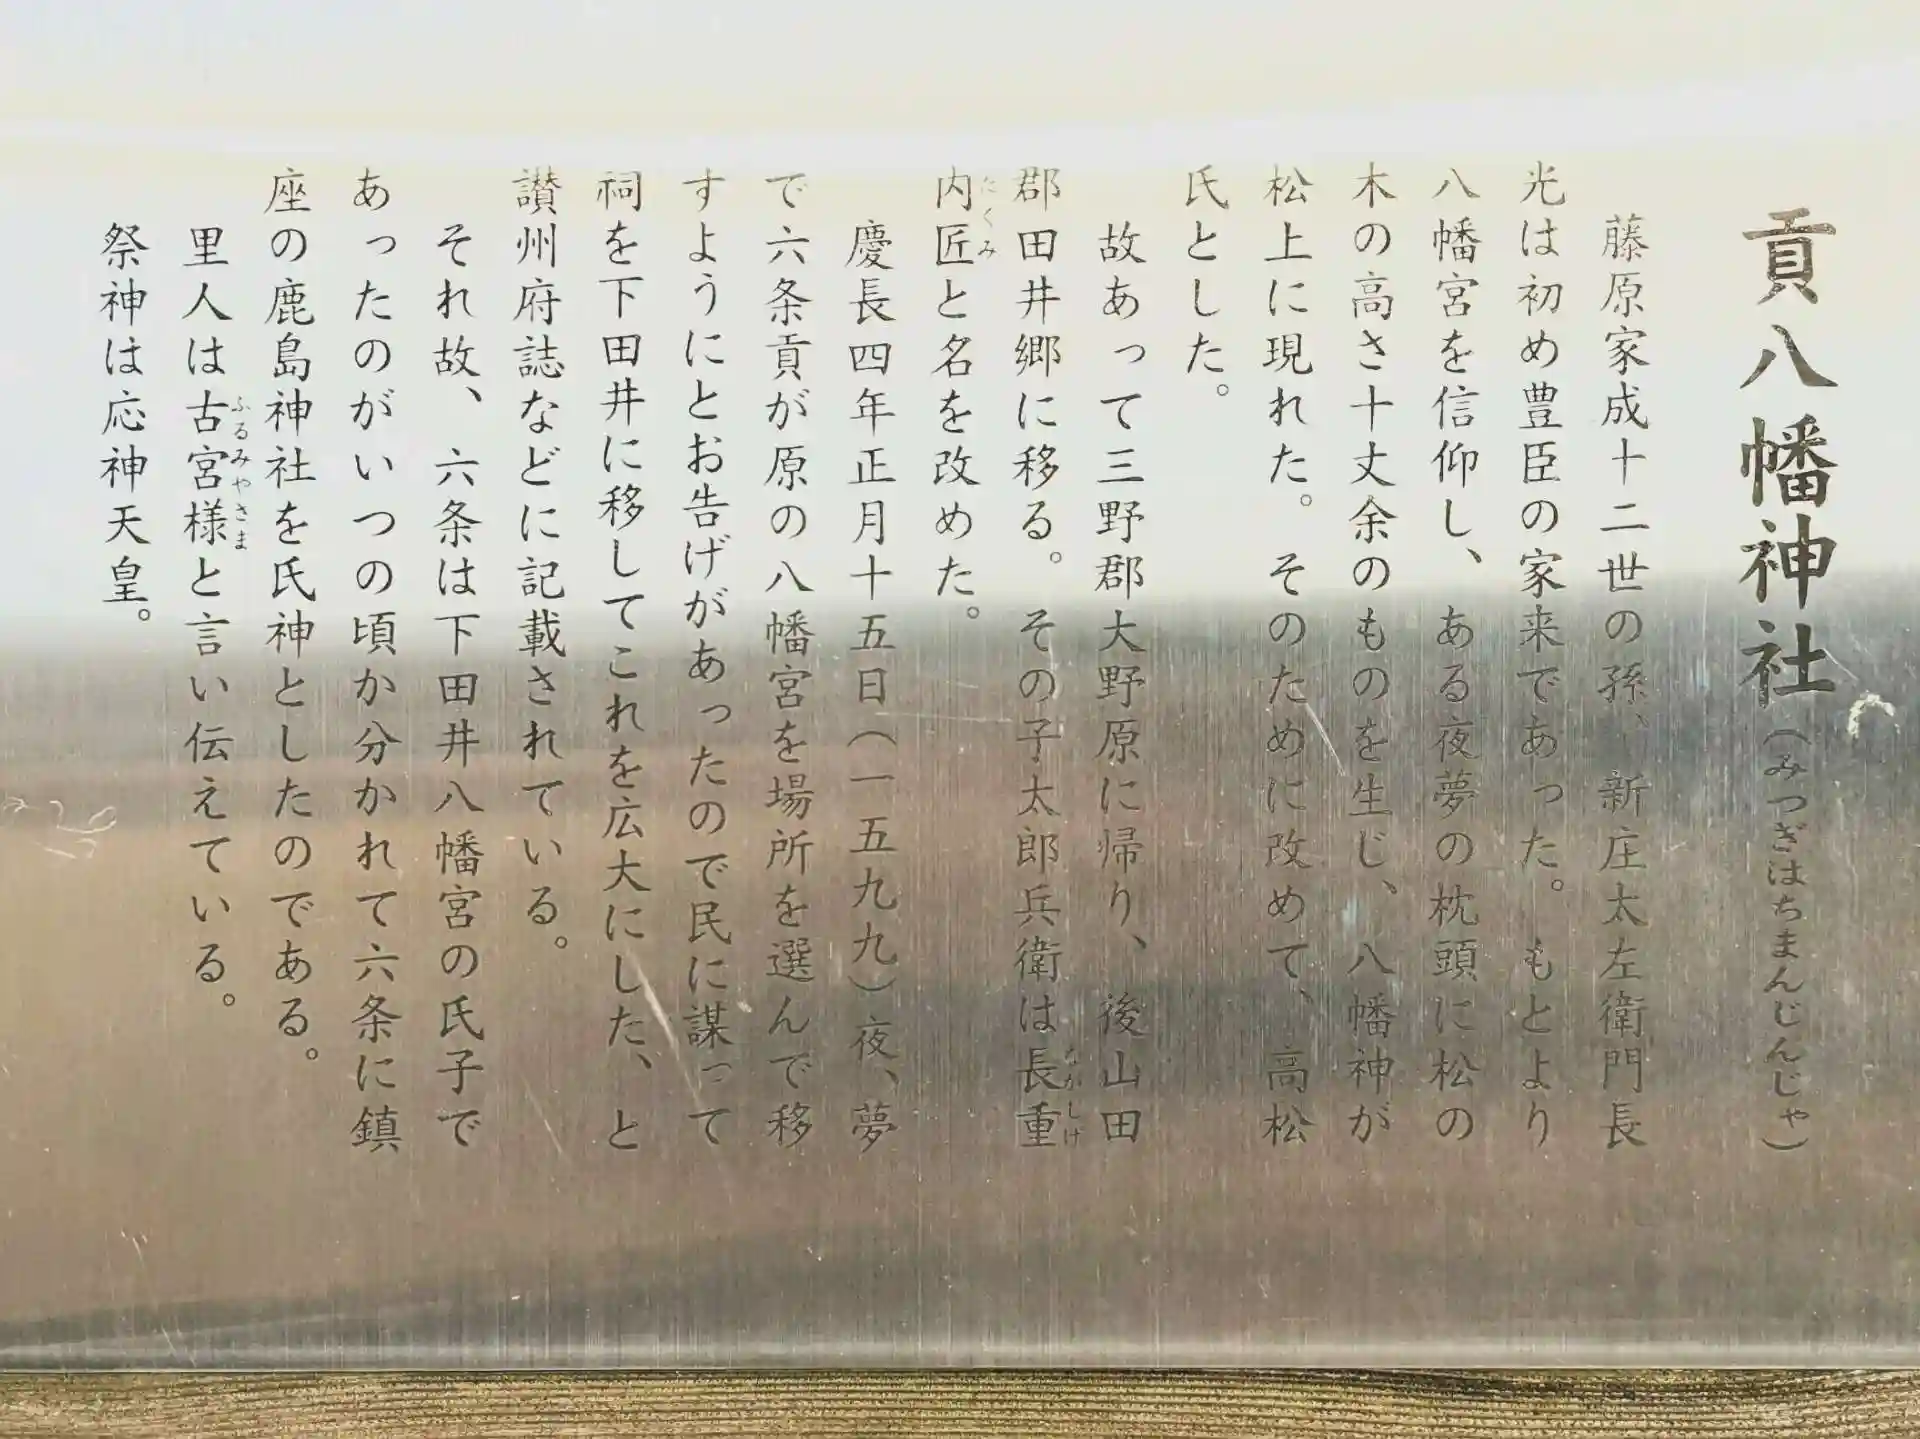 貢八幡神社(みつぎはちまんじんじゃ)
藤原家成十二世の孫、新庄太左衛門長
光は初め豊臣の家来であった。もとより
八幡宮を信仰し、ある夜夢の枕頭に松の
木の高さ十丈余のものを生じ、八幡神が
松上に現れた。そのために改めて、高松
氏とした。
故あって三野郡大野原に帰り、後山田
郡田井郷に移る。その子太郎兵衛は長重(ながしげ)
内匠(たくみ)と名を改めた。
慶長四年正月十五日(一五九九)夜、夢
で六条貢が原の八幡宮を場所を選んで移
すようにとお告げがあったので民に謀って
祠を下田井に移してこれを広大にした、と
讃州府誌などに記載されている。
それ故、六条は下田井八幡宮の氏子で
あったのがいつの頃か分かれて六条に鎮
座の鹿島神社を氏神としたのである。
里人は古宮様(ふるみやさま)と言い伝えている。
祭神は応神天皇。